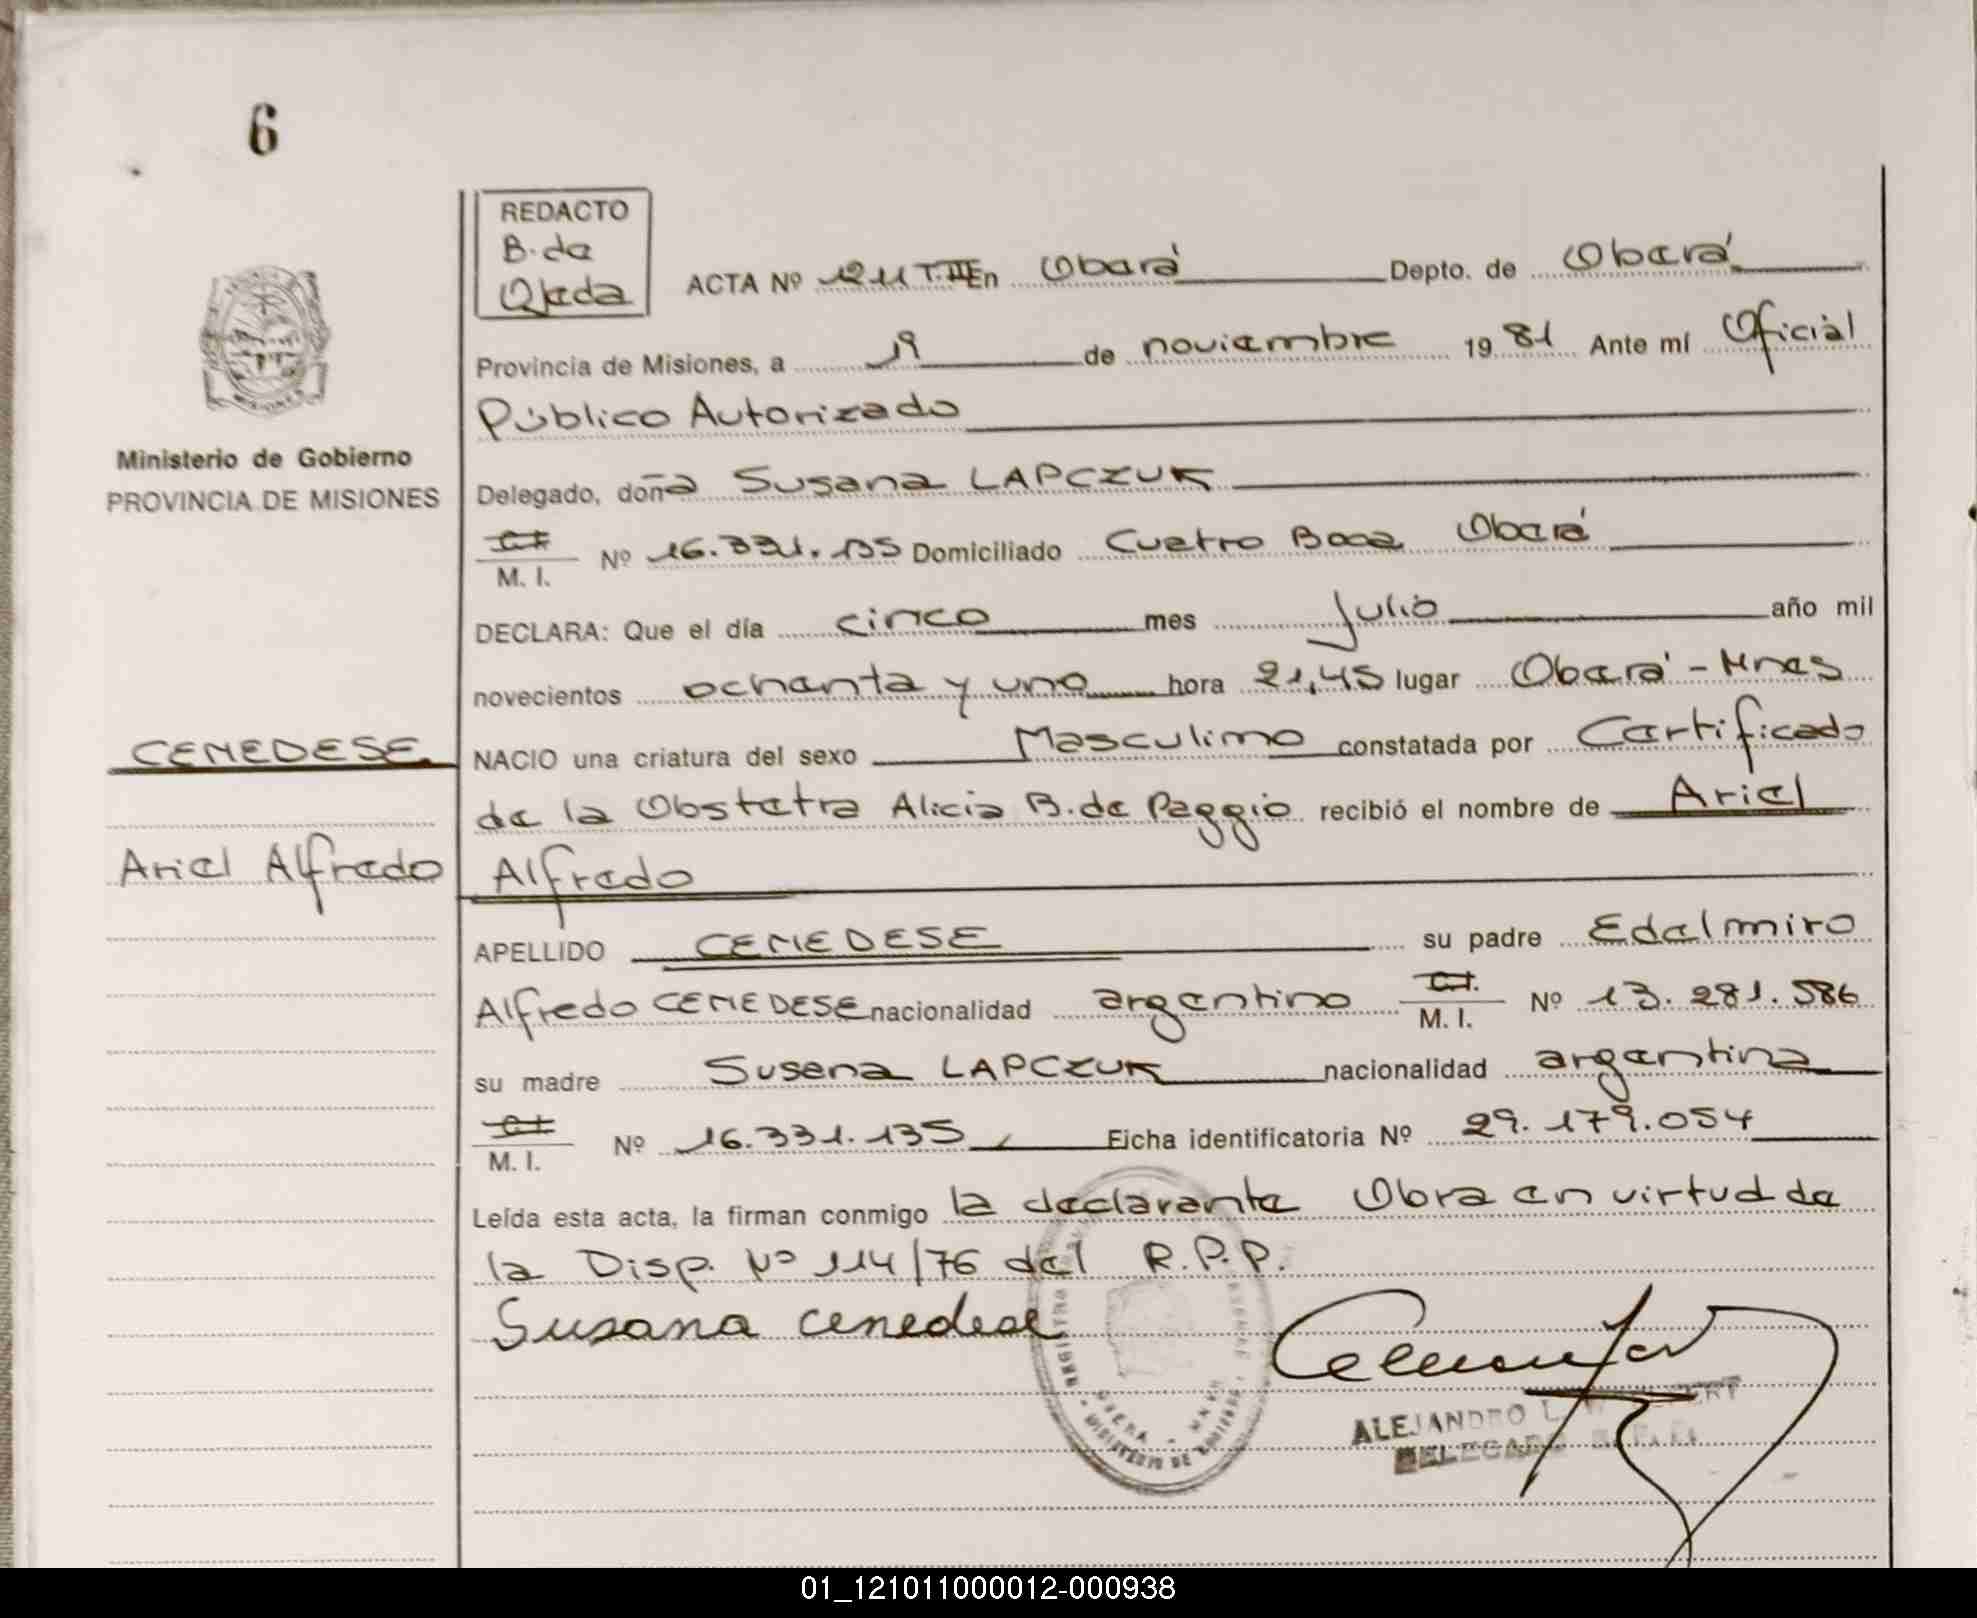 6
REDACTO
B. de
Ojeda
ACTA Nº 1211 T. III En Oberá Depto. de Oberá
Provincia de Misiones, a 19 de noviembre 1981 Ante mí Oficial
Público Autorizado
Ministerio de Gobierno
PROVINCIA DE MISIONES
Delegado, doña Susana LAPCZUK
C.I.
M. I. Nº 16.331.135 Domiciliado Cuatro Boca Oberá
DECLARA: Que el día cinco mes Julio año mil
novecientos ochenta y uno hora 21,45 lugar Oberá - Mnes
CENEDESE
NACIO una criatura del sexo Masculino constatada por Certificado
de la Obstetra Alicia B. de Paggio recibió el nombre de Ariel
Ariel Alfredo
Alfredo
APELLIDO CENEDESE su padre Edalmiro
Alfredo CENEDESE nacionalidad argentino C.I. M. I. Nº 13.281.586
su madre Susana LAPCZUK nacionalidad argentina
C.I.
M. I. Nº 16.331.135 Ficha identificatoria Nº 29.179.054
Leída esta acta, la firman conmigo la declarante Obra en virtud de
la Disp. Nº 114/76 del R.P.P.
Susana Cenedese
ALEJANDRO L.
DELEGADO
01_121011000012-000938